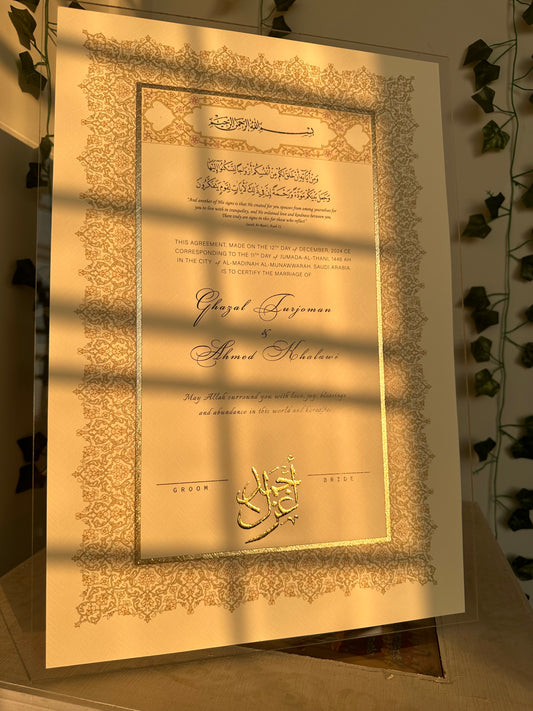 بسم الله الرحمن الرحيم
وَمِنْ آيَاتِهِ أَنْ خَلَقَ لَكُم مِّنْ أَنفُسِكُمْ أَزْوَاجًا لِّتَسْكُنُوا إِلَيْهَا
وَجَعَلَ بَيْنَكُم مَّوَدَّةً وَرَحْمَةً إِنَّ فِي ذَٰلِكَ لَآيَاتٍ لِّقَوْمٍ يَتَفَكَّرُونَ
"And another of His signs is that He created for you spouses from among yourselves for
you to live with in tranquility, and He ordained love and kindness between you.
There truly are signs in this for those who reflect"
THIS AGREEMENT, MADE ON THE 12TH DAY of DECEMBER, 2024 CE
CORRESPONDING TO THE 11TH DAY of JUMADA-AL-THANI, 1446 AH
IN THE CITY of AL-MADINAH AL-MUNAWWARAH, SAUDI ARABIA
IS TO CERTIFY THE MARRIAGE OF
Ghazal Turjoman
&
Ahmed Khalawi
May Allah surround you with love, joy, blessings
and abundance in this world and hereafter.
أحمد
غزل
GROOM
BRIDE